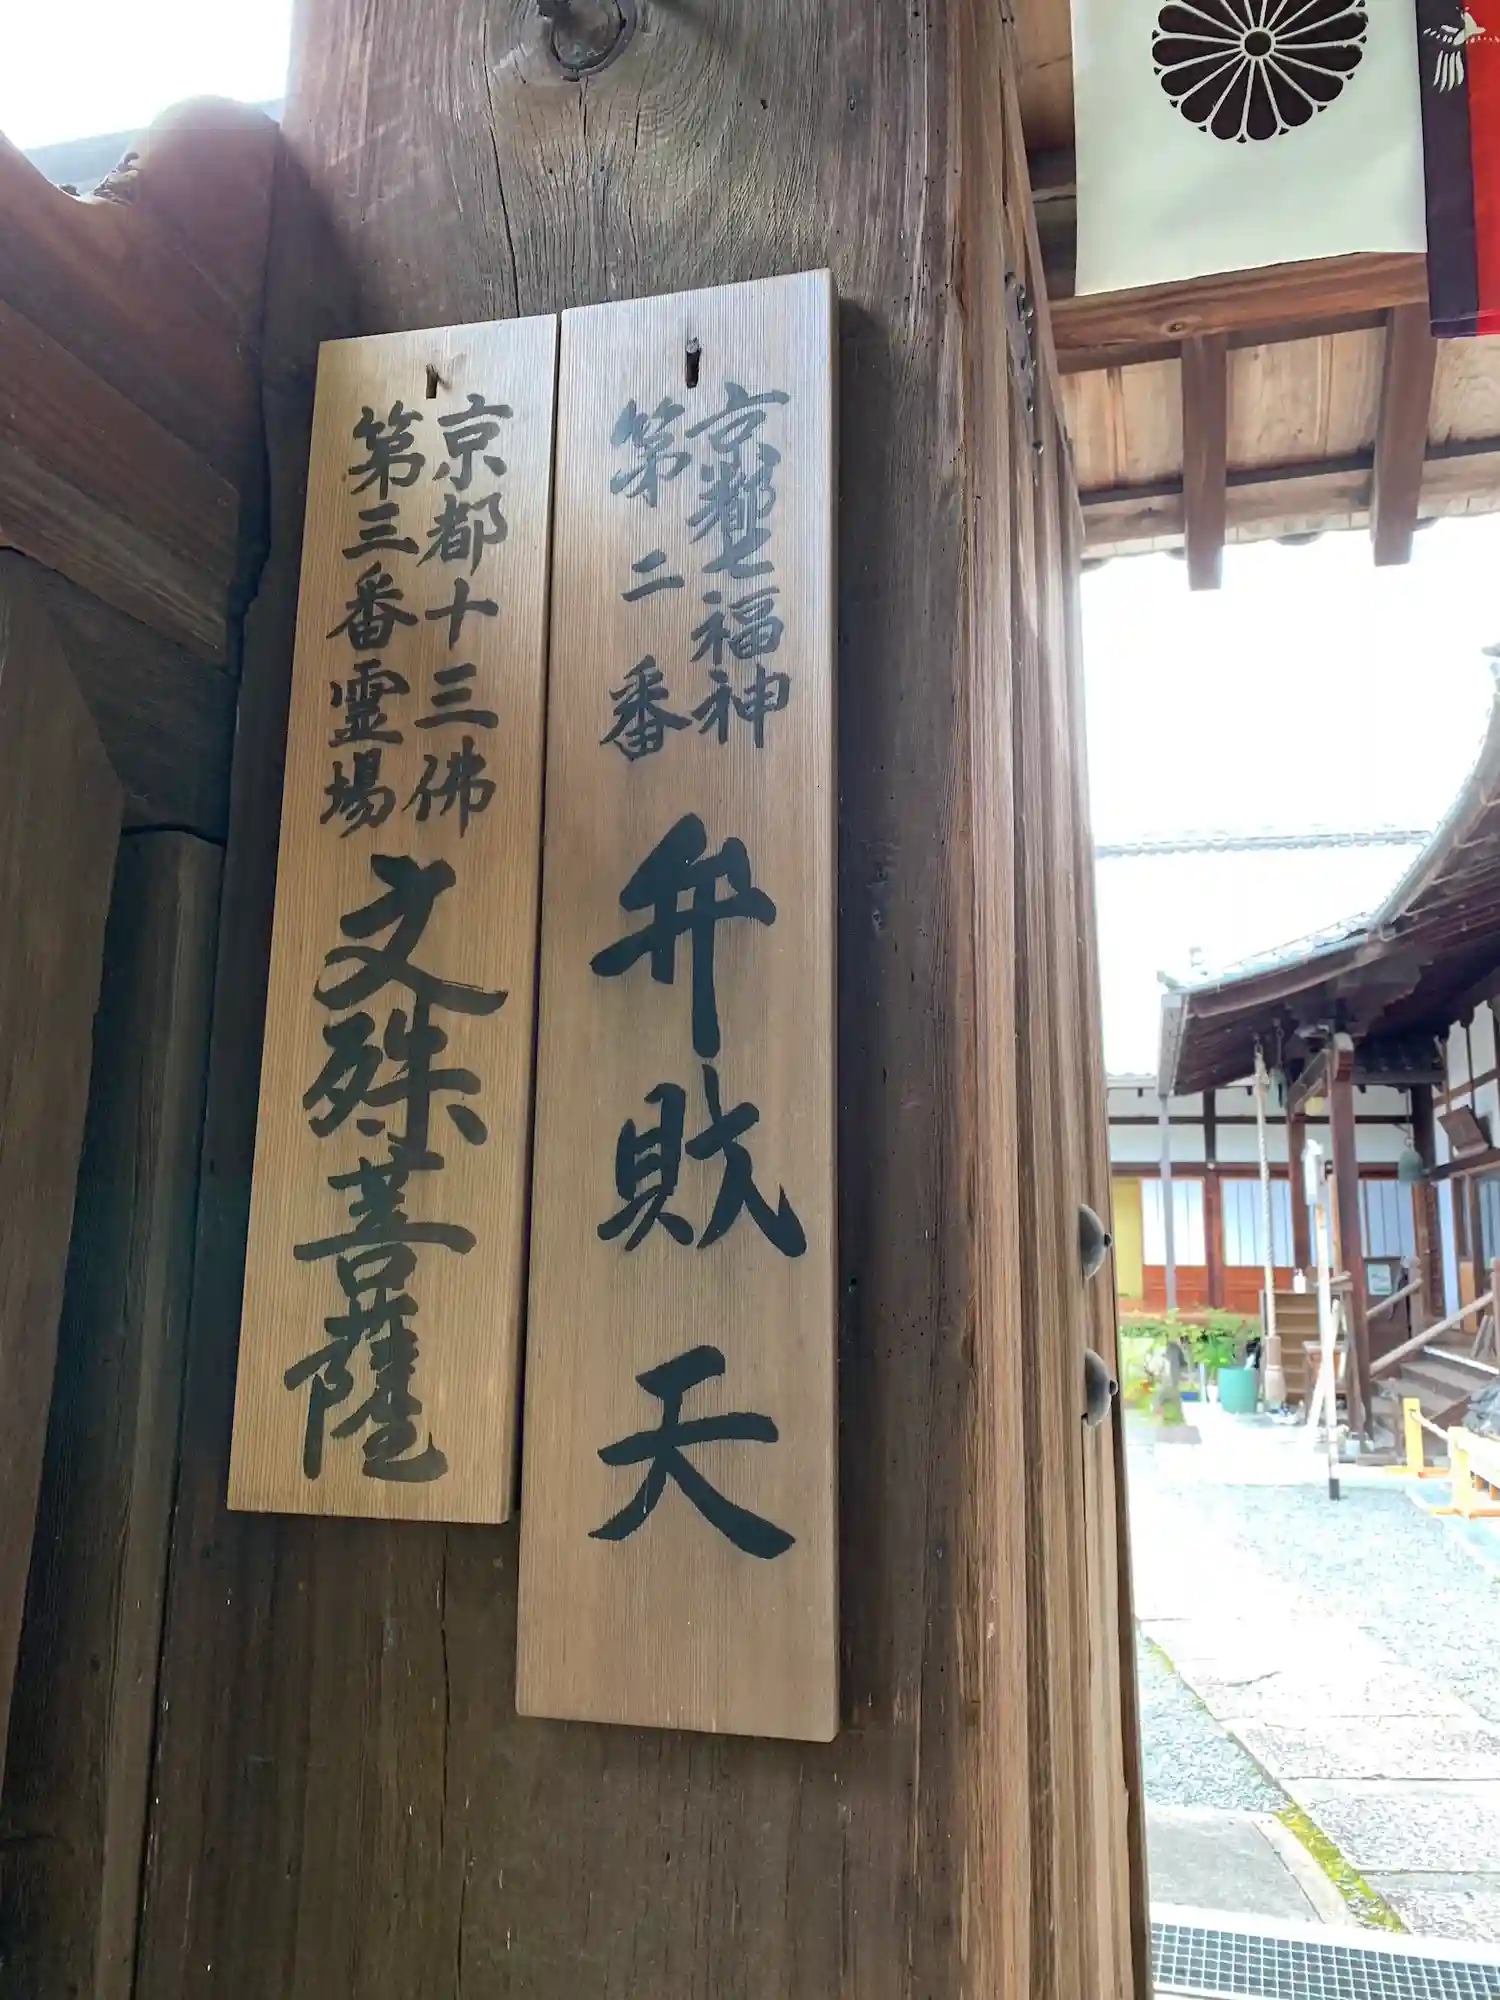 京都七福神
第二番
弁財天
京都十三佛
第三番霊場
文殊菩薩